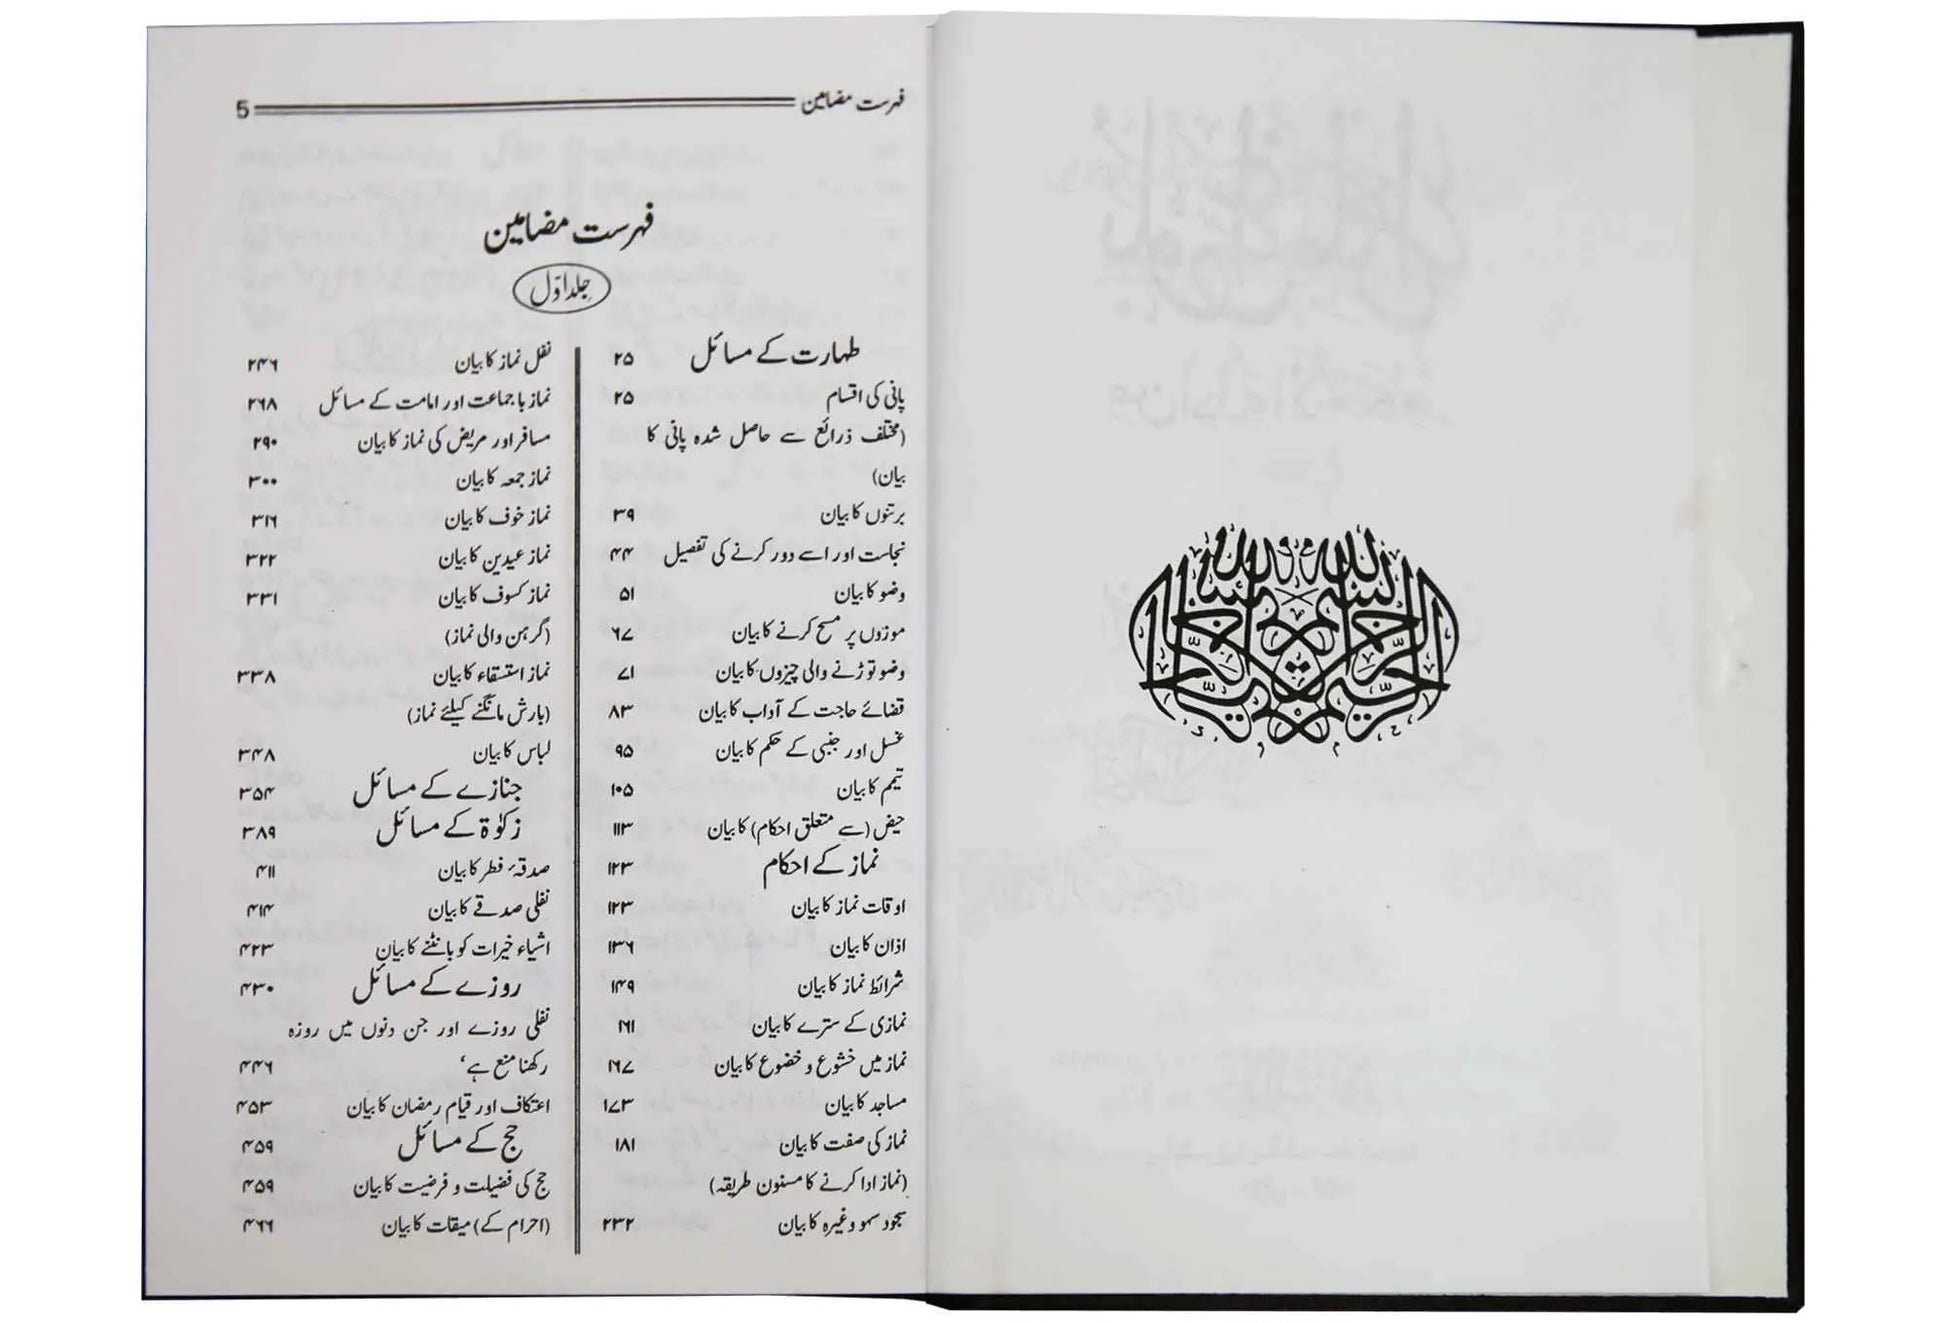 بسم الله الرحمن الرحيم
فہرست مضامین 5
فہرست مضامین
جلد اوّل
طہارت کے مسائل ۲۵
پانی کی اقسام ۲۵
(مختلف ذرائع سے حاصل شدہ پانی کا
بیان)
برتنوں کا بیان ۳۹
نجاست اور اسے دور کرنے کی تفصیل ۴۴
وضو کا بیان ۵۱
موزوں پر مسح کرنے کا بیان ۶۷
وضو توڑنے والی چیزوں کا بیان ۷۱
قضائے حاجت کے آداب کا بیان ۸۳
غسل اور جنبی کے حکم کا بیان ۹۵
تیمم کا بیان ۱۰۵
حیض (سے متعلق احکام) کا بیان ۱۱۳
نماز کے احکام ۱۲۳
اوقات نماز کا بیان ۱۲۳
اذان کا بیان ۱۳۶
شرائط نماز کا بیان ۱۴۹
نمازی کے سترے کا بیان ۱۶۱
نماز میں خشوع و خضوع کا بیان ۱۶۷
مساجد کا بیان ۱۷۳
نماز کی صفت کا بیان ۱۸۱
(نماز ادا کرنے کا مسنون طریقہ)
سجود سہو وغیرہ کا بیان ۲۳۲
نفل نماز کا بیان ۲۴۶
نماز باجماعت اور امامت کے مسائل ۲۶۸
مسافر اور مریض کی نماز کا بیان ۲۹۰
نماز جمعہ کا بیان ۳۰۰
نماز خوف کا بیان ۳۱۶
نماز عیدین کا بیان ۳۲۲
نماز کسوف کا بیان ۳۳۱
(گرہن والی نماز)
نماز استسقاء کا بیان ۳۳۸
(بارش مانگنے کیلئے نماز)
لباس کا بیان ۳۴۸
جنازے کے مسائل ۳۵۴
زکوٰۃ کے مسائل ۳۸۹
صدقۂ فطر کا بیان ۴۱۱
نفلی صدقے کا بیان ۴۱۴
اشیاء خیرات کو بانٹنے کا بیان ۴۲۳
روزے کے مسائل ۴۳۰
نفلی روزے اور جن دنوں میں روزہ
رکھنا منع ہے، ۴۴۶
اعتکاف اور قیام رمضان کا بیان ۴۵۳
حج کے مسائل ۴۵۹
حج کی فضیلت و فرضیت کا بیان ۴۵۹
(احرام کے) میقات کا بیان ۴۶۶